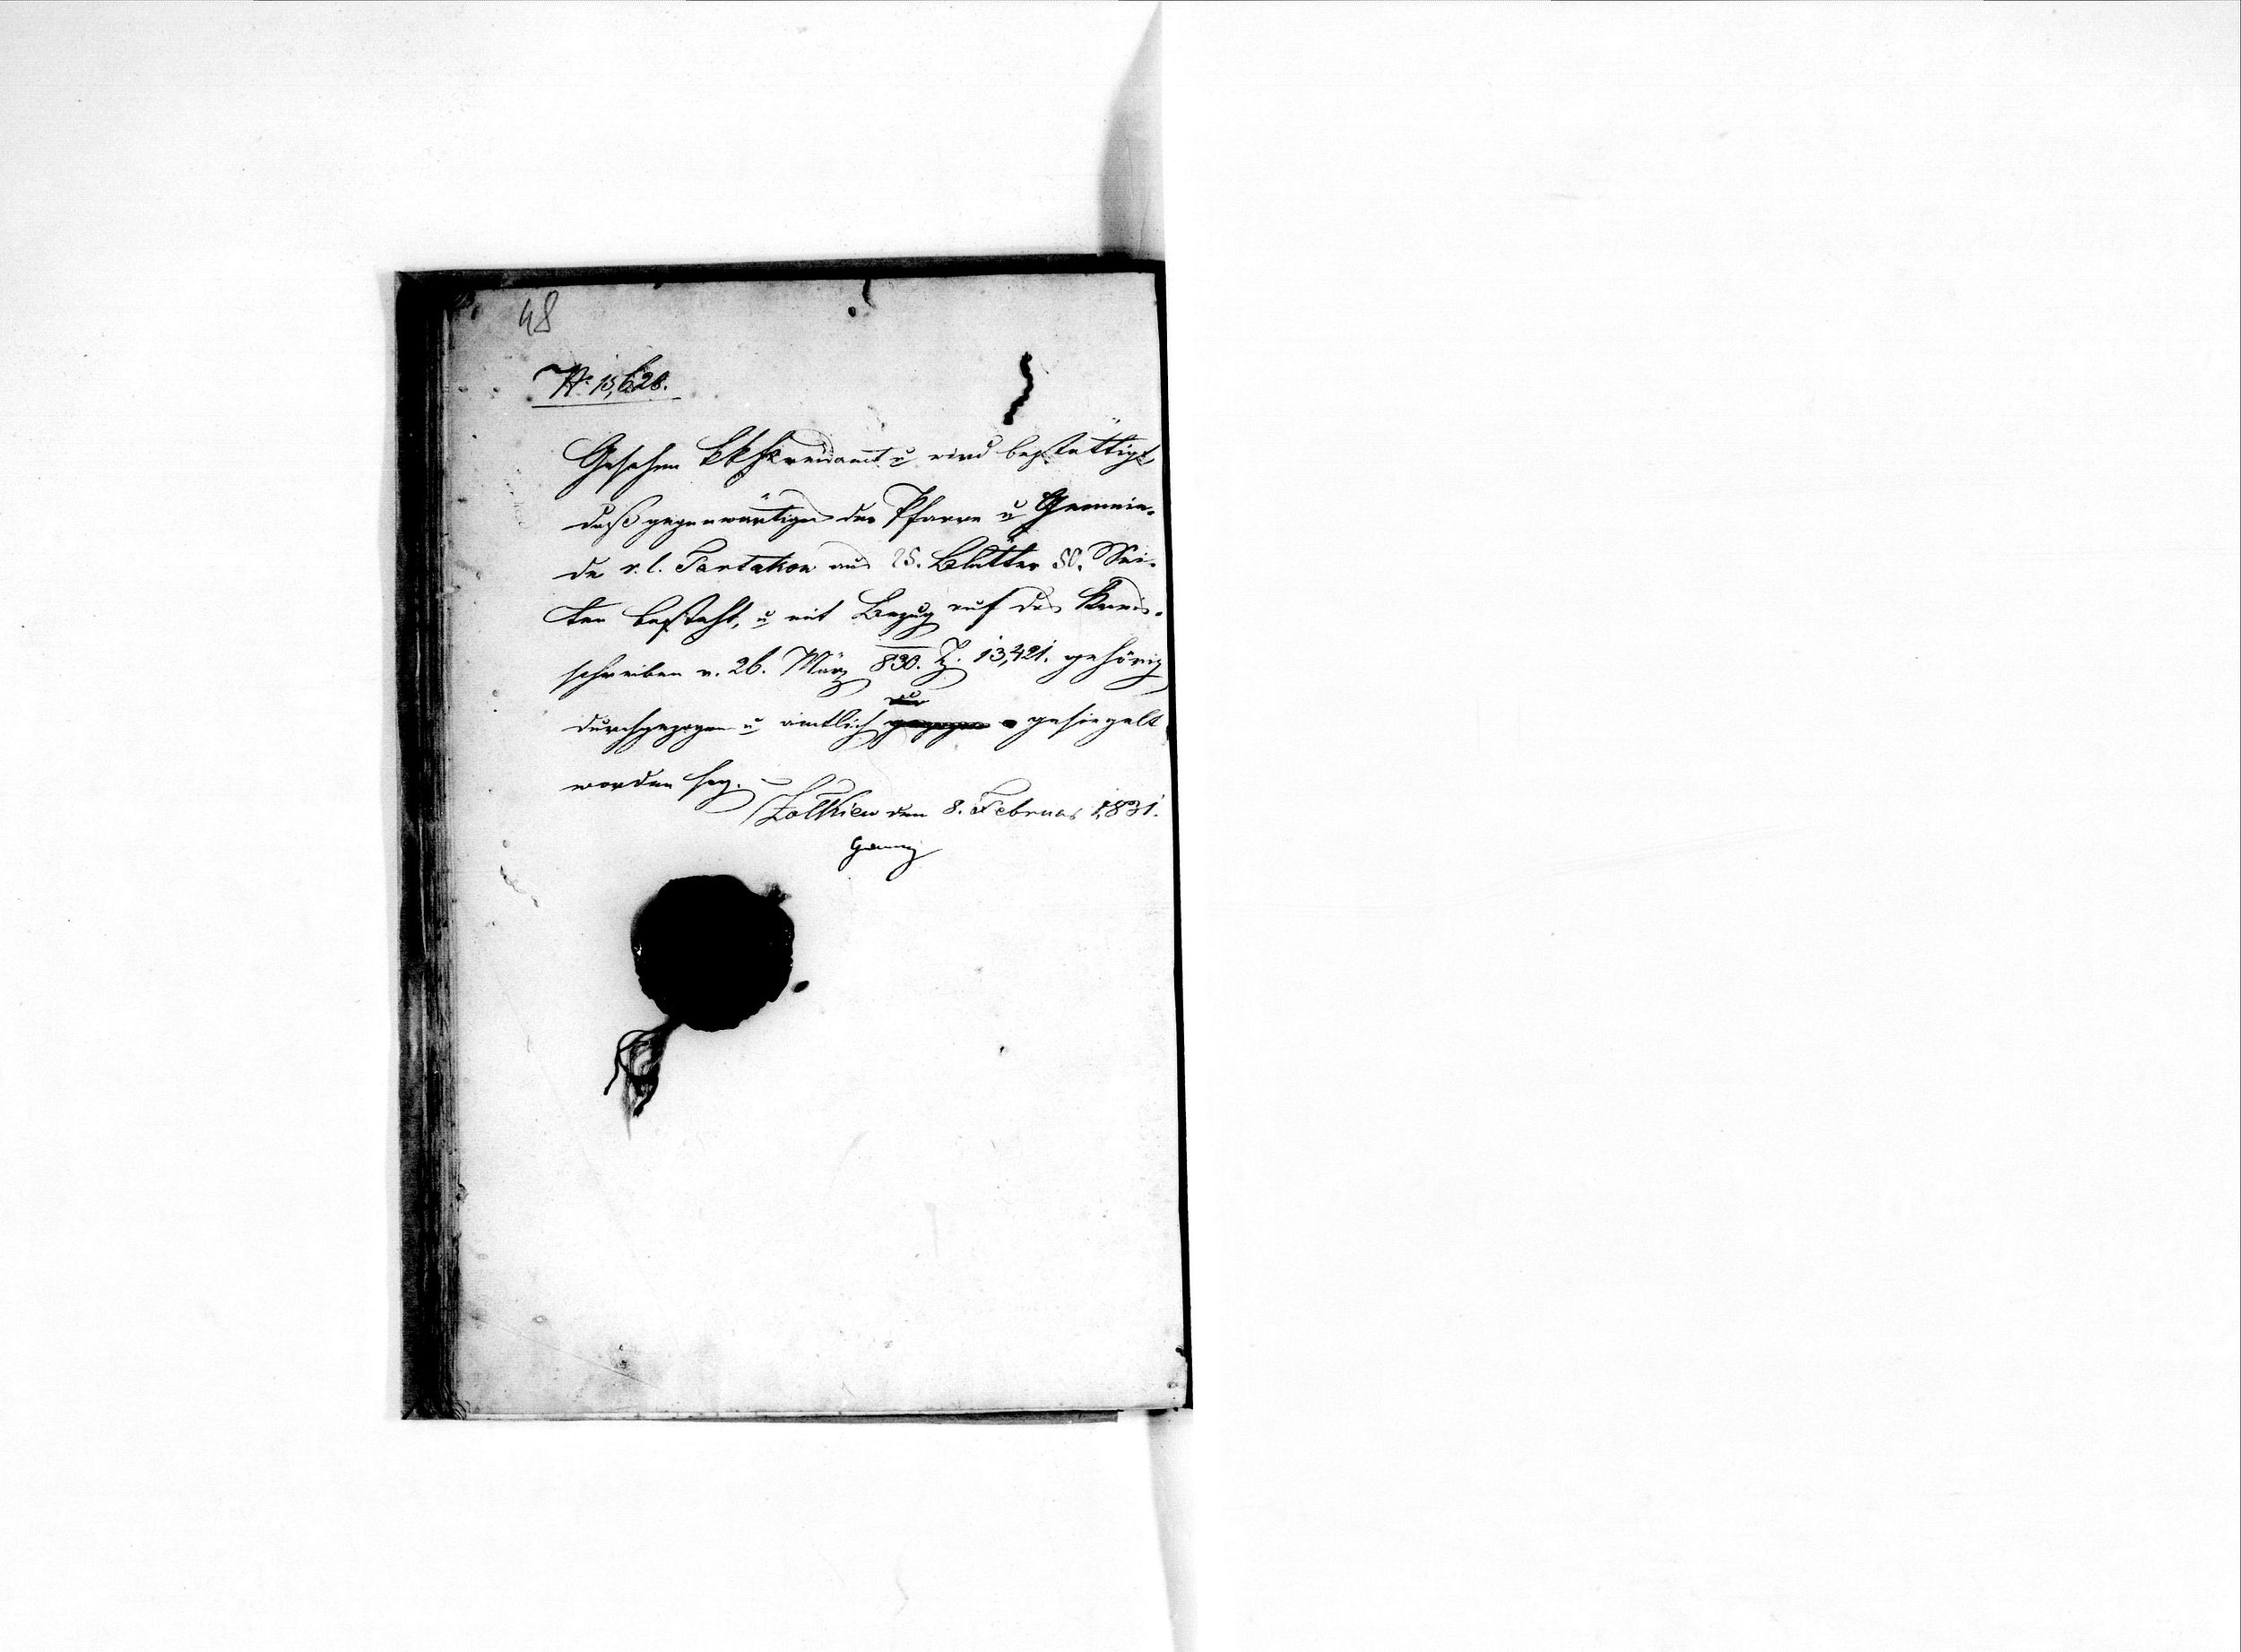 48
No 15,628.
Gesehen kk Kreisamt u wird bestättigt
daß gegenwärtiges der Pfarre u Gemein-
de r. l. Tartakow aus 25. Blätter 50. Sei-
ten besteht, u mit Bezug auf das Kreis-
schreiben v. 26. März 830. Z. 13,421. gehörig
durchgezogen u amtlich gesiegelt
worden sey.
Zolkiew den 8. Februar 1831.